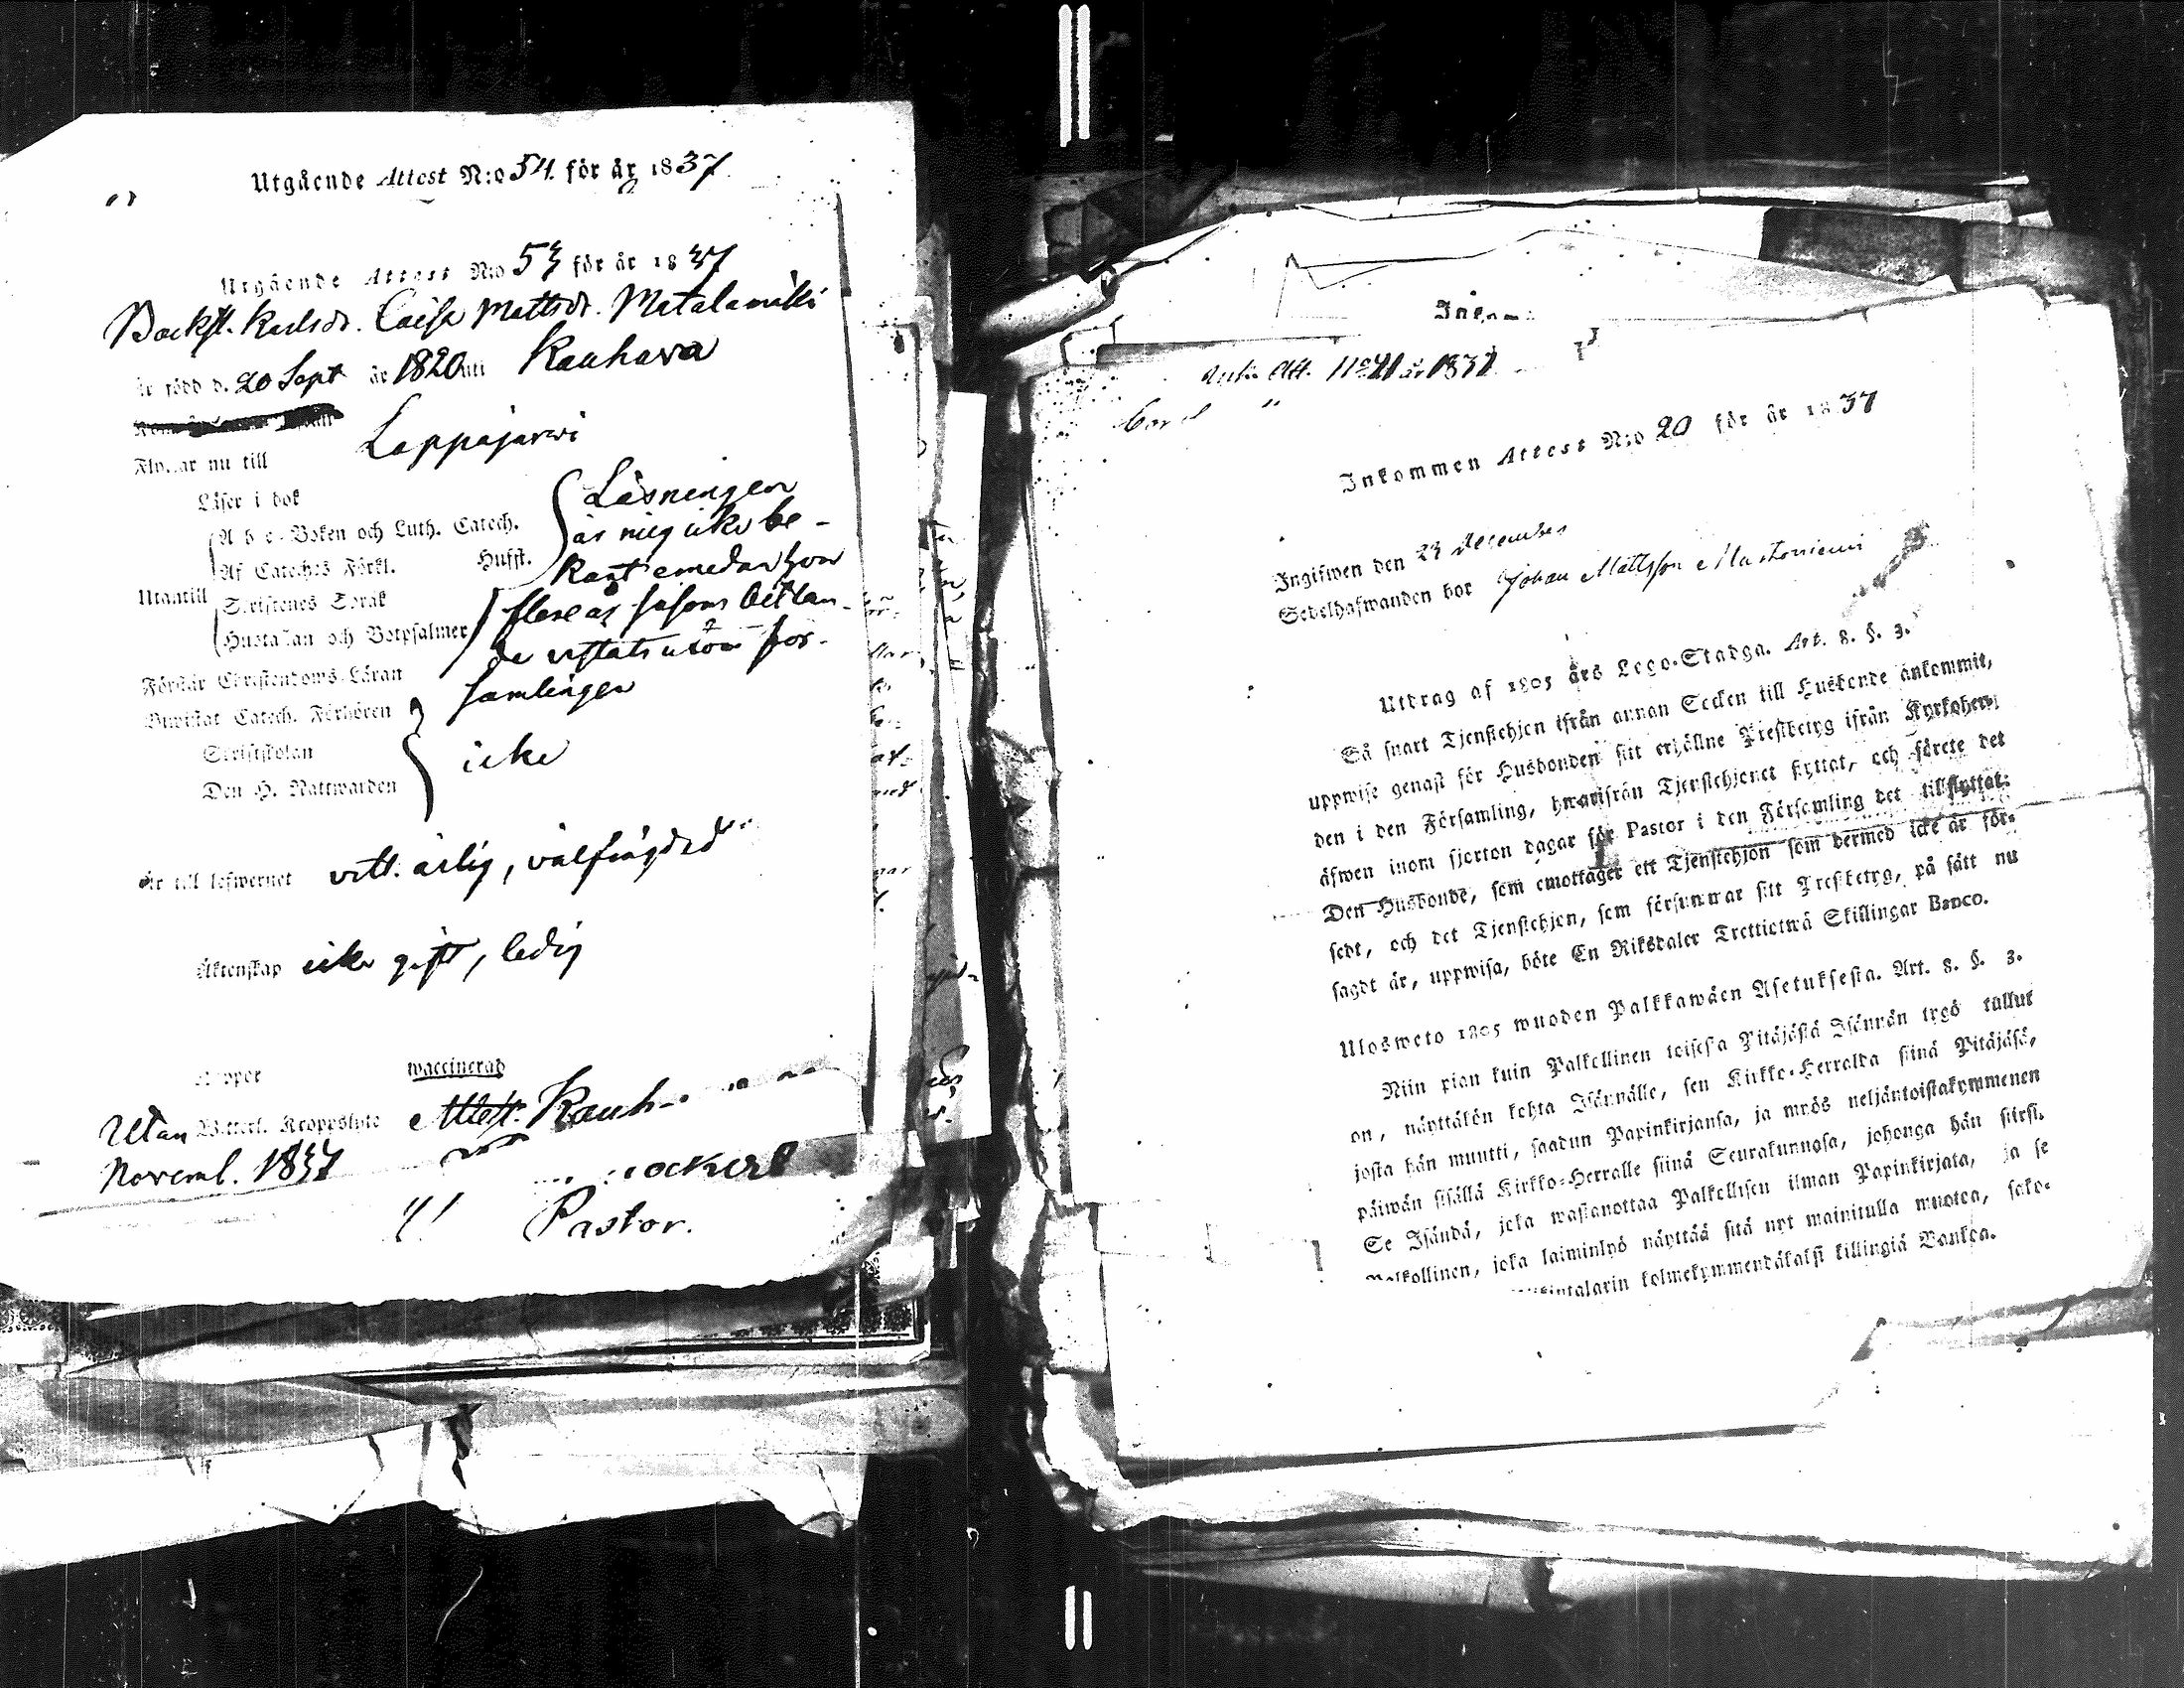 Utgående Attest N:o 54. för år 1837
Utgående Attest N:o 53 för år 1837
Backst. Karlsdr. Caisa Mattsdr. Metalamäki
är född d. 20 Sept år 1820 uti Kauhava
Flyttar nu till Lappajärvi
Läser i bok
A b c-Boken och Luth. Catech.
Af Cateches Förkl. Husst.
Utantill
Skriftenes Språk
Hustaflan och Botpsalmer
Läsningen
är mig icke be-
kant emedan hon
flere år såsom bettlan-
de vistats utom för-
samlingen
Förstår Christendoms-Läran
Biwistat Catech. Förhören
Skriftskolan
Den H. Nattwarden
icke
är till lefwernet vitt. ärlig, välfrägdad
Äktenskap icke gift, ledig
Koppor waccinerad
Utan Wetterl. Kroppslyte Attest. Kauh
Noveml. 1837
Pastor.
Inkom
Att. No 21 år 1837
Inkommen Attest N:o 20 för år 1837
Ingifwen den 23 December
Sedelhafwanden bor Johan Mattsson Mustoniemi
Utdrag af 1805 års Lego-Stadga. Art. 8. §. 3.
Så snart Tjenstehjon ifrån annan Socken till Husbonde ankommit,
uppwise genast för Husbonden sitt erhållne Prestbetyg ifrån Kyrkoher-
den i den Församling, hwarifrån Tjenstehjonet flyttat, och förete det
äfwen inom fjorton dagar för Pastor i den Församling det tillflyttat.
Den Husbonde, som emottager ett Tjenstehjon som dermed icke är för-
sedt, och det Tjenstehjon, som försummar sitt Prestbetyg, på sätt nu
sagdt är, uppwisa, böte En Riksdaler Trettiotwå Skillingar Banco.
Ulosweto 1805 wuoden Palkkawäen Asetuksesta. Art. 8. §. 3.
Niin pian kuin Palkollinen toisesta Pitäjästä Isännän tygö tullut
on, näyttäkön kohta Isännälle, sen Kirkko-Herralda siinä Pitäjäsä,
josta hän muutti, saadun Papinkirjansa, ja myös neljäntoistakymmenen
päiwän sisällä Kirkko-Herralle siinä Seurakunnasa, johonga hän siirsi.
Se Isändä, joka wastanottaa Palkollisen ilman Papinkirjata, ja se
Palkollinen, joka laiminlyö näyttää sitä nyt mainitulla muotoa, sako-
kolmekymmendäkaksi killingiä Bankoa.